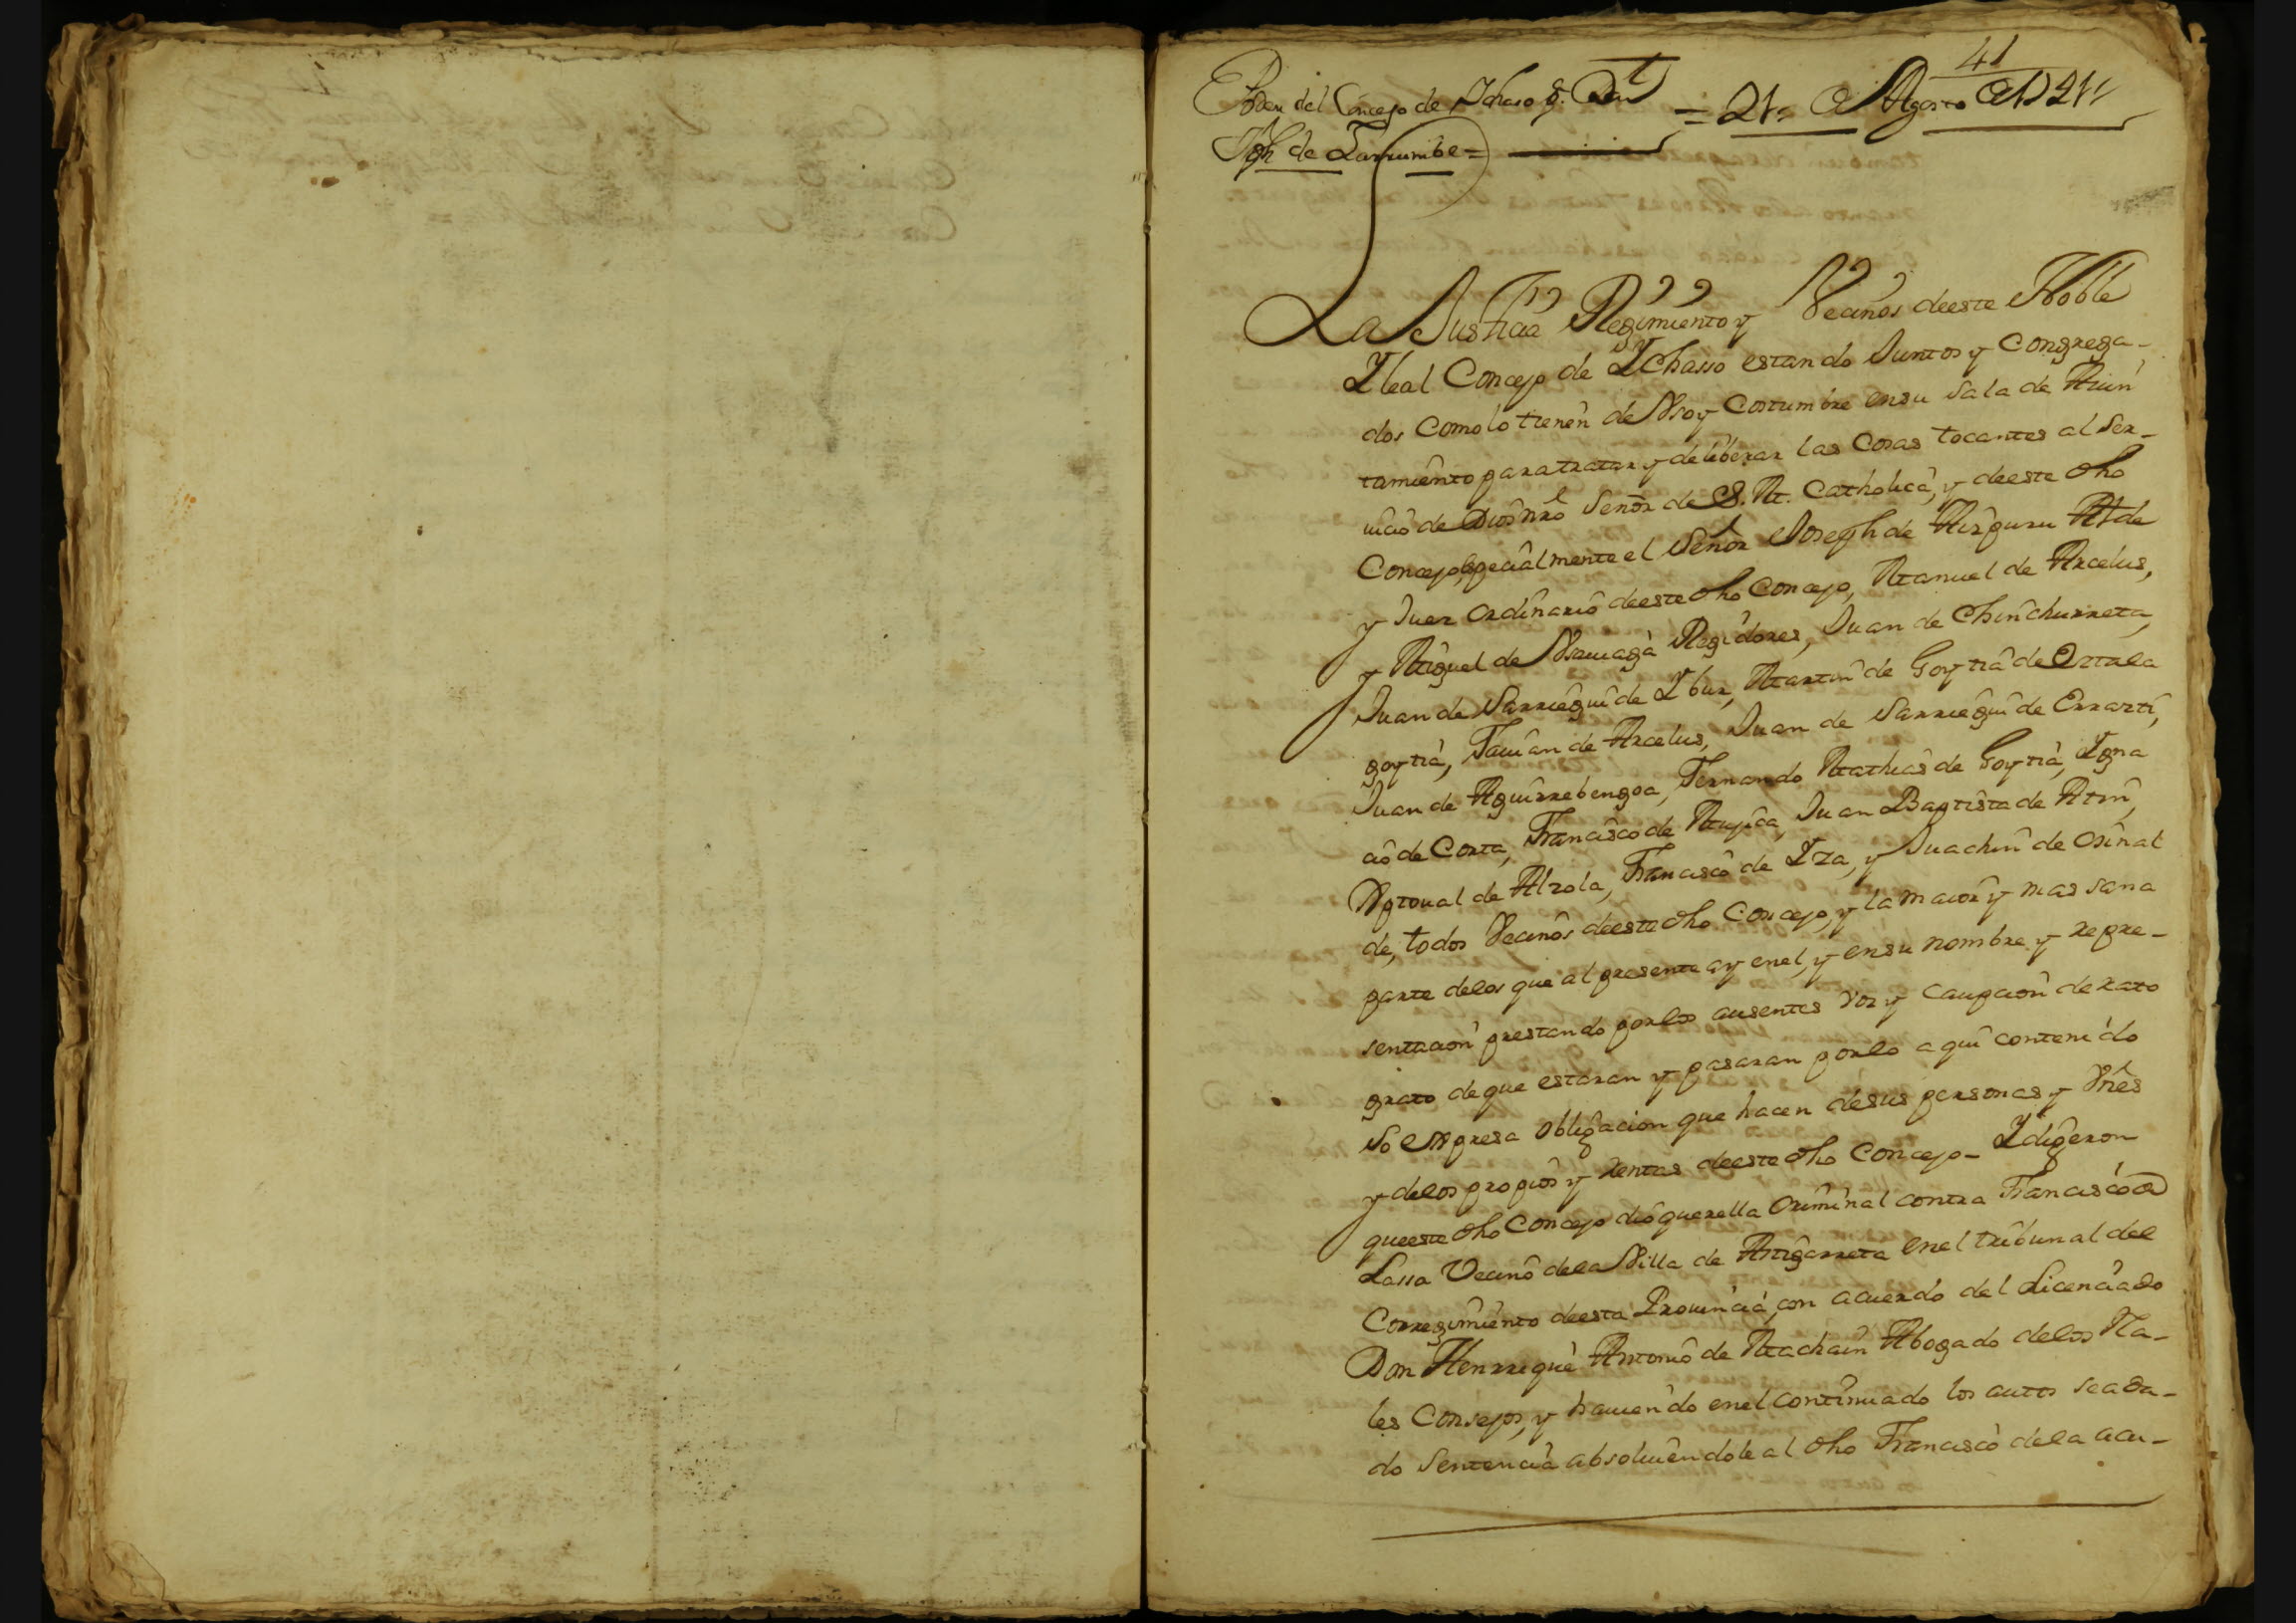 41
Poder del Concejo de Ichaso
Jph de Larrumbe = = 21„ Agosto
La Justicia Regimiento y Vecinos deeste Noble
Y leal Concejo de Ychasso estando Juntos y Congrega-
dos como lo tienen de Vso y Costumbre en su Sala de Aiun
tamiento para tratar y deliberar las Cosas tocantes al Ser-
uicio de Dios nro Señor de S. M. Catholica, y deeste dho
Concejo, especialmente el Señor Joseph de Aizpuru Alde
y Juez ordinario deeste dho Concejo, Manuel de Arcelus,
y Miguel de Vsuuaga Regidores, Juan de Chinchurreta,
Juan de Sarriegui de Ybur, Martin de Goytia de Oztala
goytia, Fauian de Arcelus, Juan de Sarriegui de Errazti,
Juan de Aguirrebengoa, Fernando Mathias de Goytia, Igna
cio de Corta, Francisco de Mujica, Juan Baptista de Atin,
Xptoual de Alzola, Francisco de Yza, y Juachin de Osinal
de, todos Vecinos deeste dho Concejo, y la maior y mas sana
parte delos que al presente ay enel, y en su nombre y repre-
sentacion prestando por los ausentes voz y caupcion de rato
grato de que estaran y pasaran por lo aqui contenido
so expresa obligacion que hacen de sus personas y Vnes
y delos propios y rentas deeste dho Concejo- Y digeron
que este dho Concejo dio querella Criminal contra Francisco de
Lassa Vecino dela Villa de Astigarreta enel tribunal del
Corregimiento deesta Prouincia, con acuerdo del Licenciado
Don Henrrique Antonio de Machain Abogado delos Rea-
les Consejos, y hauiendo enel continuado los autos se a da-
do Sentencia absoluiendole al dho Francisco dela acu-